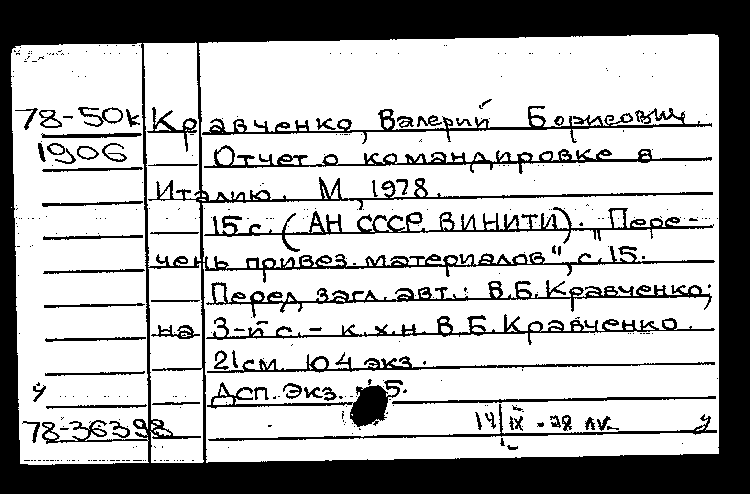 78-50к Кравченко, Валерий Борисович.
1906 Отчет о командировке в
Италию. М., 1978.
15 с. (АН СССР. ВИНИТИ). "Пере-
чень привез. материалов", с. 15.
Перед загл. авт.: В.Б. Кравченко;
на 3-й с. - к.х.н. В.Б. Кравченко.
21 см. 104 экз.
Дсп. Экз. 5.
у
78-36398 14/IX - 78 у